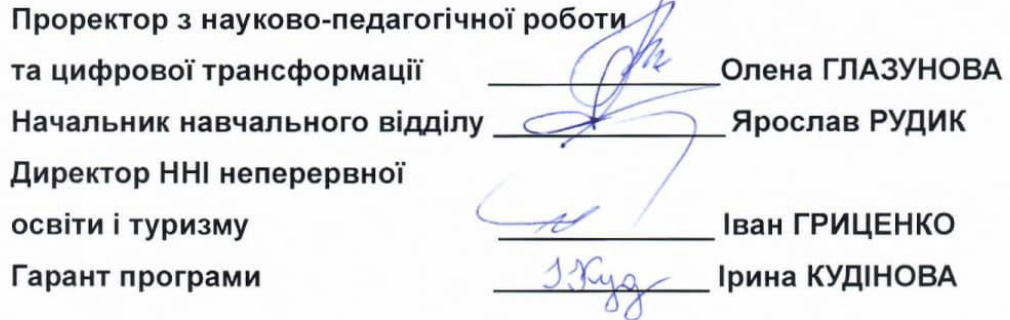 Проректор з науково-педагогічної роботи
та цифрової трансформації Олена ГЛАЗУНОВА
Начальник навчального відділу Ярослав РУДИК
Директор ННІ неперервної
освіти і туризму Іван ГРИЦЕНКО
Гарант програми І.Куд Ірина КУДІНОВА